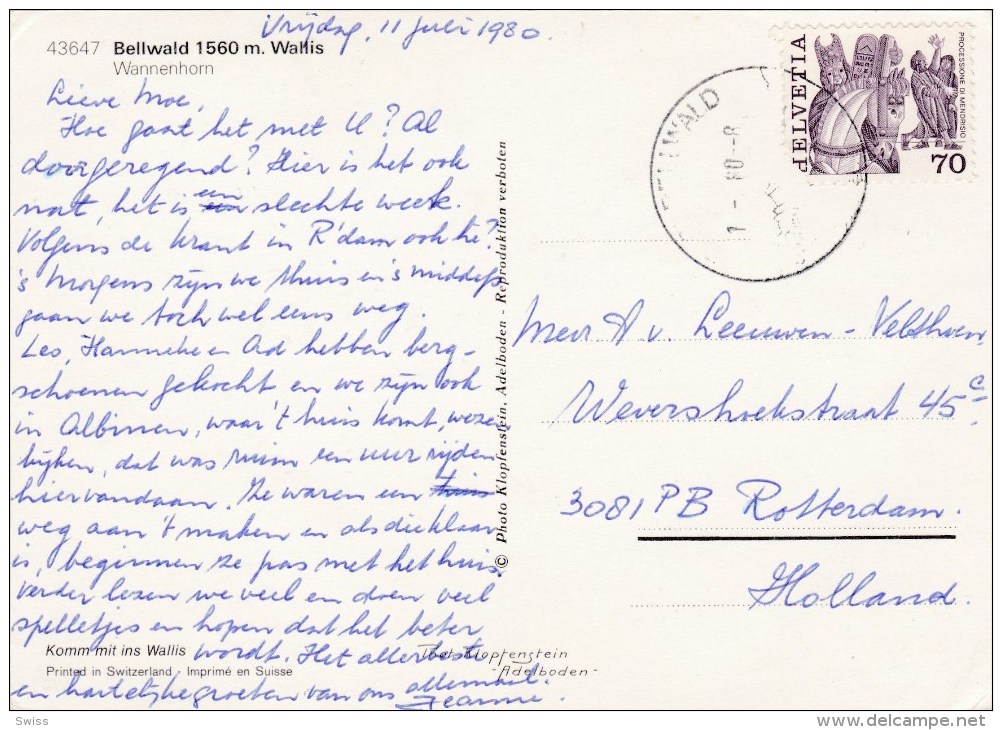 Vrijdag, 11 Juli 1980.
43647 Bellwald 1560 m. Wallis
Wannenhorn
Lieve Moe,
Hoe gaat het met U? Al
doorgeregend? Hier is het ook
nat, het is een slechte week.
Volgens de krant in R'dam ook hè?
's Morgens zijn we thuis en 's middags
gaan we toch wel eens weg.
Les, Hanneke en Ad hebben berg-
schoenen gekocht en we zijn ook
in Albinen, waar 't huis komt, wezen
kijken, dat was ruim een uur rijden
hiervandaan. Ze waren een
weg aan 't maken en als die klaar
is, beginnen ze pas met het huis.
Verder lezen we veel en doen veel
spelletjes en hopen dat het beter
wordt. Het allerbeste
en hartelijke groeten van ons allemaal.
Jeanne.
Komm mit ins Wallis
Klopfenstein
-Adelboden-
Printed in Switzerland · Imprimé en Suisse
© Photo Klopfenstein, Adelboden - Reproduktion verboten
HELVETIA
PROCESSIONE DI MENDRISIO
70
Mevr A v. Leeuwen-Velthoven
Wevershoekstraat 45c
3081 PB Rotterdam.
Holland.
Swiss
delcampe.net